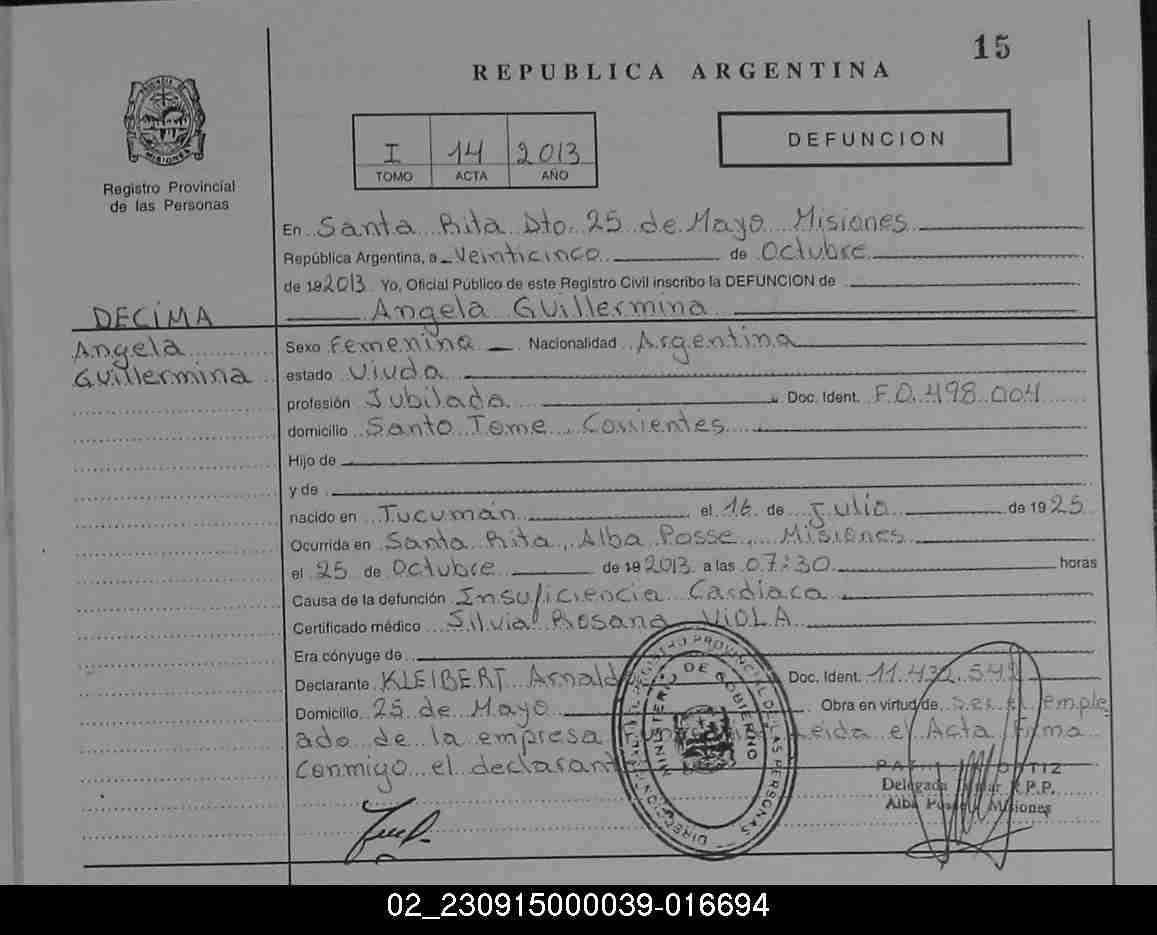 15
REPUBLICA ARGENTINA
PROVINCIA DE MISIONES
Registro Provincial
de las Personas
I 14 2013
TOMO ACTA AÑO
DEFUNCION
En Santa Rita Dto. 25 de Mayo Misiones
República Argentina, a Veinticinco de Octubre
de 192013 Yo, Oficial Público de este Registro Civil inscribo la DEFUNCION de
DECIMA Angela Guillermina
Angela
Guillermina
Sexo Femenina Nacionalidad Argentina
estado Viuda
profesión Jubilada Doc. Ident. F.0.498.004
domicilio Santo Tome, Corrientes
Hijo de
y de
nacido en Tucumán el 16 de Julio de 1925
Ocurrida en Santa Rita, Alba Posse, Misiones
el 25 de Octubre de 192013 a las 07:30 horas
Causa de la defunción Insuficiencia Cardiaca
Certificado médico Silvia Rosana VIOLA
Era cónyuge de
Declarante KLEIBERT Arnaldo Doc. Ident. 11.432.549
Domicilio 25 de Mayo Obra en virtud de Ser el emple
ado de la empresa Leida el Acta Firma
Conmigo el declarante
DIRECCION GRAL. REGISTRO PROVINCIAL DE LAS PERSONAS
MINISTERIO DE GOBIERNO
ORTIZ
Delegada R.P.P.
Alba Posse Misiones
02_230915000039-016694